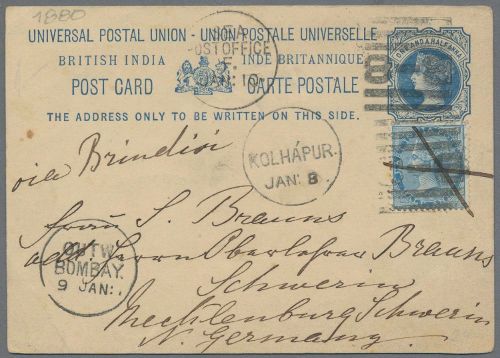 1880
UNIVERSAL POSTAL UNION - UNION POSTALE UNIVERSELLE
BRITISH INDIA INDE BRITANNIQUE
POST CARD CARTE POSTALE
THE ADDRESS ONLY TO BE WRITTEN ON THIS SIDE.
SEA
POST OFFICE
F.
JAN: 10
ONE AND A HALF ANNA
via Brindisi
KOLHÁPUR.
JAN: 8
Frau S. Brauns
Herrn Oberlehrer Brauns
OUTW
BOMBAY.
9 JAN:
Schwerin
Mecklenburg Schwerin
N. Germany.